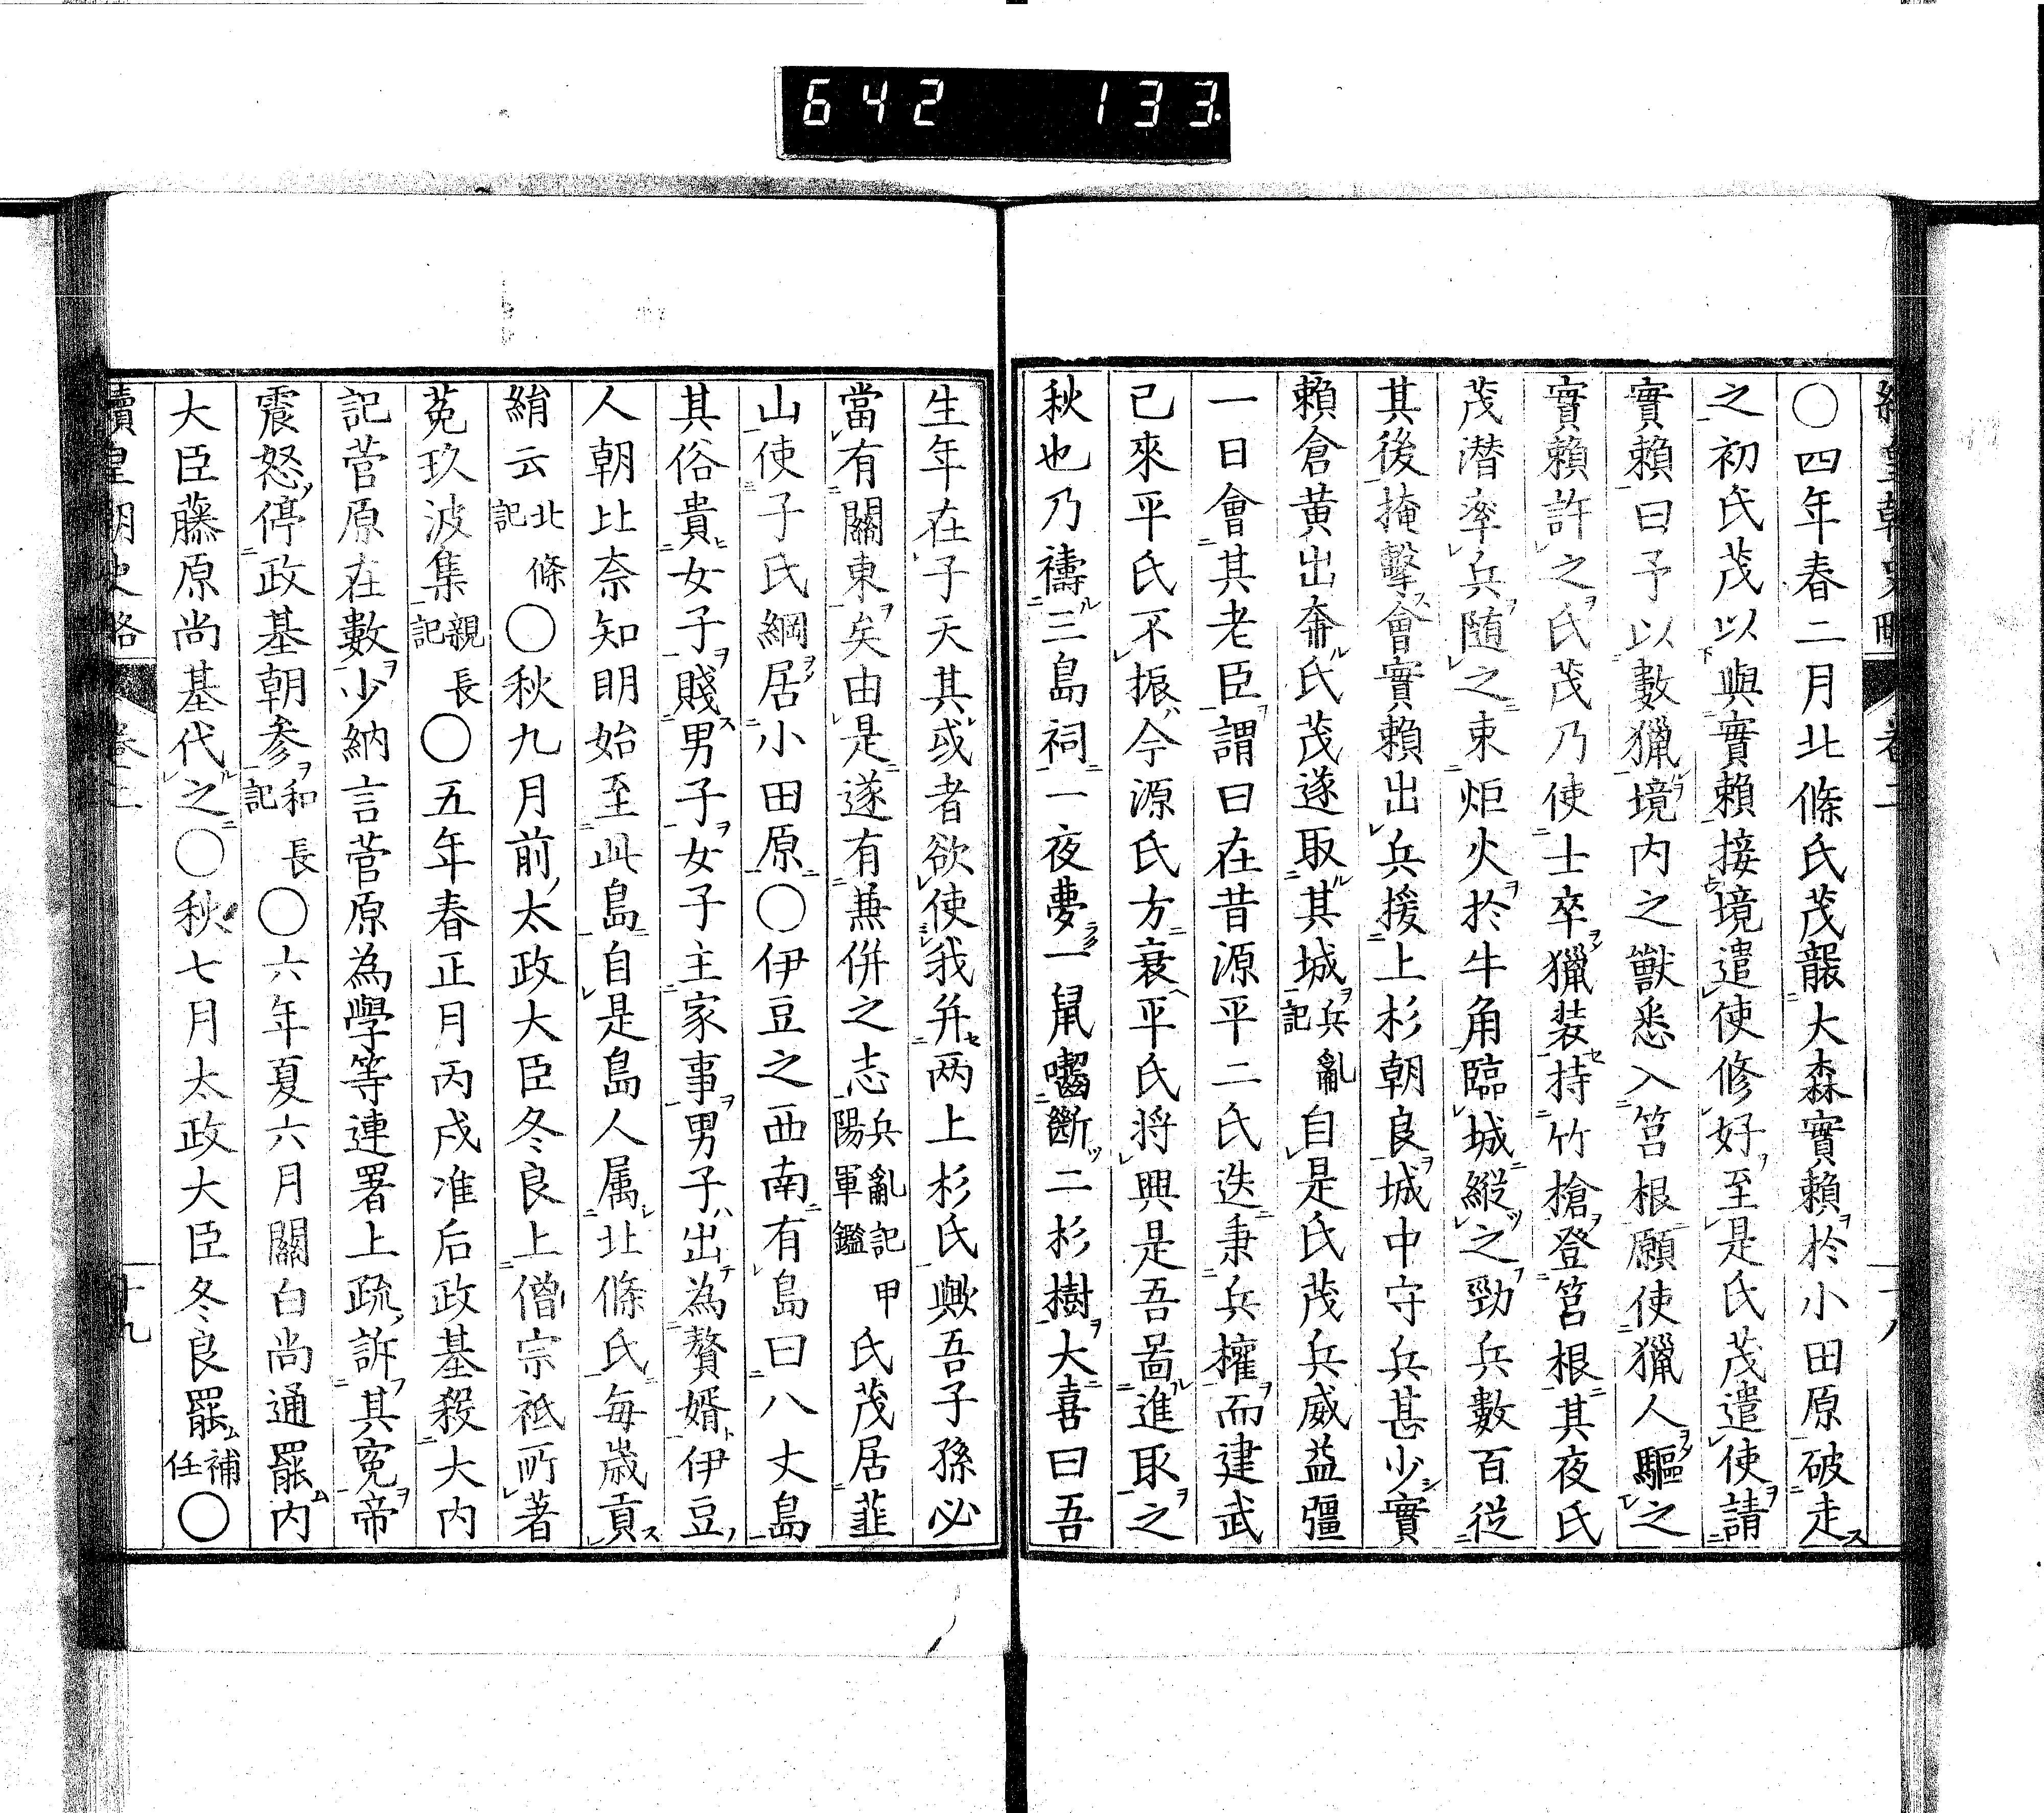 642 133.
續皇朝史略 卷二 十八
○四年春二月北條氏茂襲大森實賴於小田原破走
之初氏茂以與實賴接境遣使修好至是氏茂遣使請
實賴曰予以數獵境内之獸悉入筥根願使獵人驅之
實賴許之氏茂乃使士卒獵裝持竹槍登筥根其夜氏
茂潜率兵随之束炬火於牛角臨城縱之勁兵數百從
其後掩擊會實賴出兵援上杉朝良城中守兵甚少實
賴倉黄出奔氏茂遂取其城兵亂記自是氏茂兵威益彊
一日會其老臣謂曰在昔源平二氏迭秉兵權而建武
已來平氏不振今源氏方衰平氏将興是吾啚進取之
秋也乃禱三島祠一夜夢一鼠囓斷二杉樹大喜曰吾
生年在子天其或者欲使我并两上杉氏歟吾子孫必
當有關東矣由是遂有兼併之志兵亂記甲陽軍鑑氏茂居韮
山使子氏綱居小田原○伊豆之西南有島曰八丈島
其俗貴女子賤男子女子主家事男子出為贅婿伊豆
人朝比奈知明始至此島自是島人属北條氏每歳貢
絹云北條記○秋九月前太政大臣冬良上僧宗祗所著
菟玖波集親長記○五年春正月丙戌准后政基殺大内
記菅原在數少納言菅原為學等連署上疏訴其寃帝
震怒停政基朝参和長記○六年夏六月關白尚通罷内
大臣藤原尚基代之○秋七月太政大臣冬良罷補任○
續皇朝史略 卷二 十九